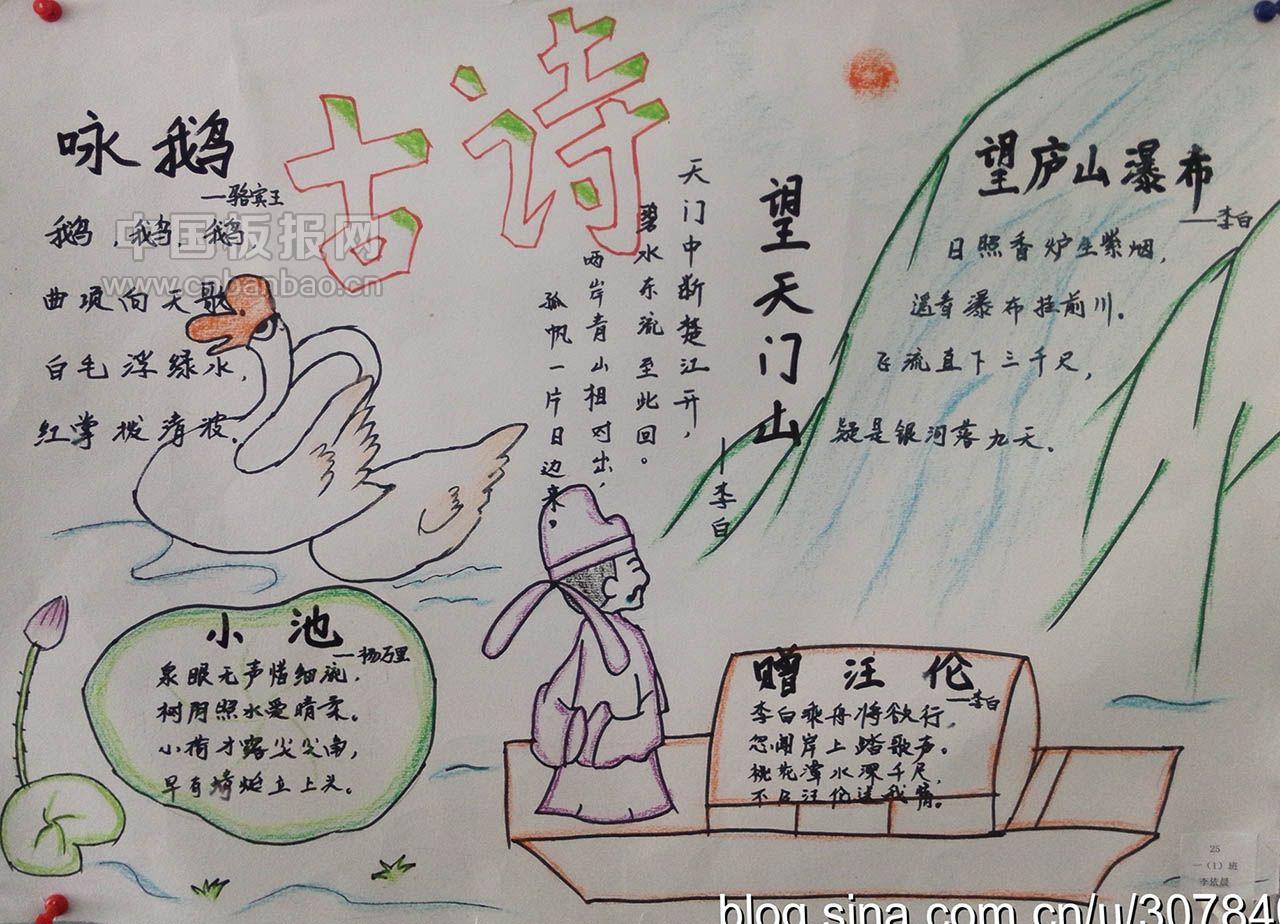 古诗
咏鹅
—骆宾王
鹅,鹅,鹅
曲项向天歌
白毛浮绿水,
红掌拨清波。
中国板报网
www.cnbanbao.cn
望天门山
—李白
天门中断楚江开,
碧水东流至此回。
两岸青山相对出,
孤帆一片日边来。
望庐山瀑布
—李白
日照香炉生紫烟,
遥看瀑布挂前川。
飞流直下三千尺,
疑是银河落九天。
小池
—杨万里
泉眼无声惜细流,
树阴照水爱晴柔。
小荷才露尖尖角,
早有蜻蜓立上头。
赠汪伦
—李白
李白乘舟将欲行,
忽闻岸上踏歌声。
桃花潭水深千尺,
不及汪伦送我情。
25
一(1)班
李依晨
blog.sina.com.cn/u/30784